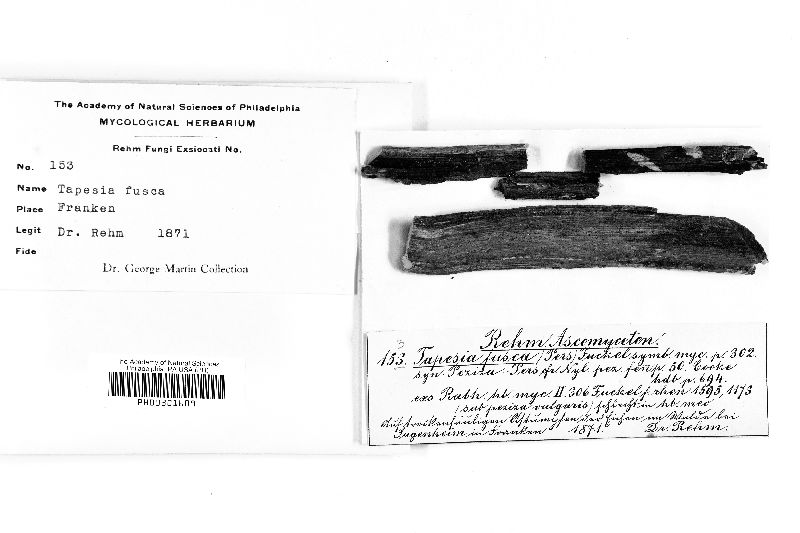 The Academy of Natural Sciences of Philadelphia
MYCOLOGICAL HERBARIUM
Rehm Fungi Exsiccati No.
No. 153
Name Tapesia fusca
Place Franken
Legit Dr. Rehm 1871
Fide
Dr. George Martin Collection
The Academy of Natural Sciences
Philadelphia, PA USA
Rehm Ascomyceten.
153. Tapesia fusca (Pers) Fuckel symb. myc. p. 302.
syn. Peziza Pers. Nyl. pez. fenn p. 50. Cooke
hdb. p. 694.
exs Rabh. hb. myc. II. 306 Fuckel f. rhen 1595, 1173
(sub peziza vulgaris)
Auf im Walde bei
Sugenheim in Franken 1871. Dr. Rehm.